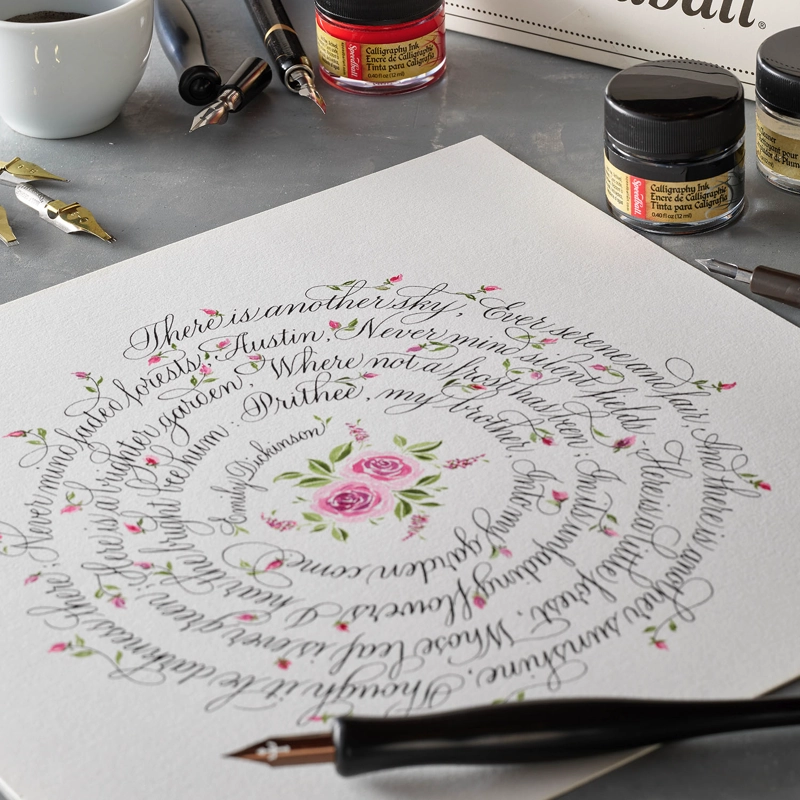 There is another sky, Ever serene and fair, And there is another sunshine, Though it be darkness there; Never mind faded forests, Austin, Never mind silent fields. Here is a little forest, Whose leaf is ever green; Here is a brighter garden, Where not a frost has been; In its unfading flowers I hear the bright bee hum: Prithee, my brother, Into my garden come!
Emily Dickinson
Speedball
Calligraphy Ink
Encre de Calligraphie
Tinta para Caligrafía
0.40 fl oz (12 ml)
Speedball
Calligraphy Ink
Encre de Calligraphie
Tinta para Caligrafía
0.40 fl oz (12 ml)